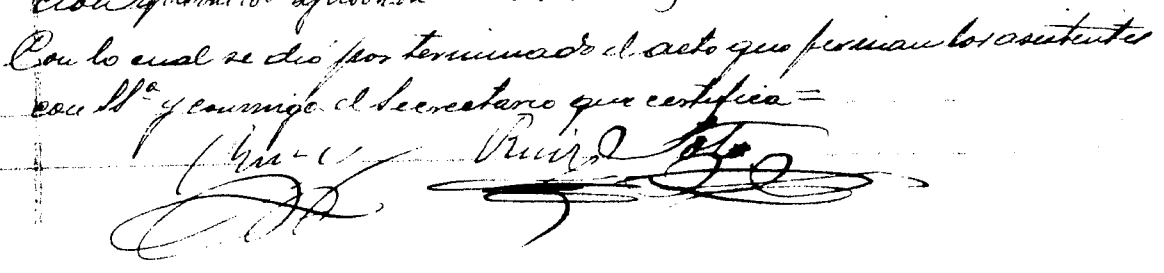 Con lo cual se dió por terminado el acto que firman los asistentes
con SSª y conmigo el Secretario que certifica =
Ruiz Soto